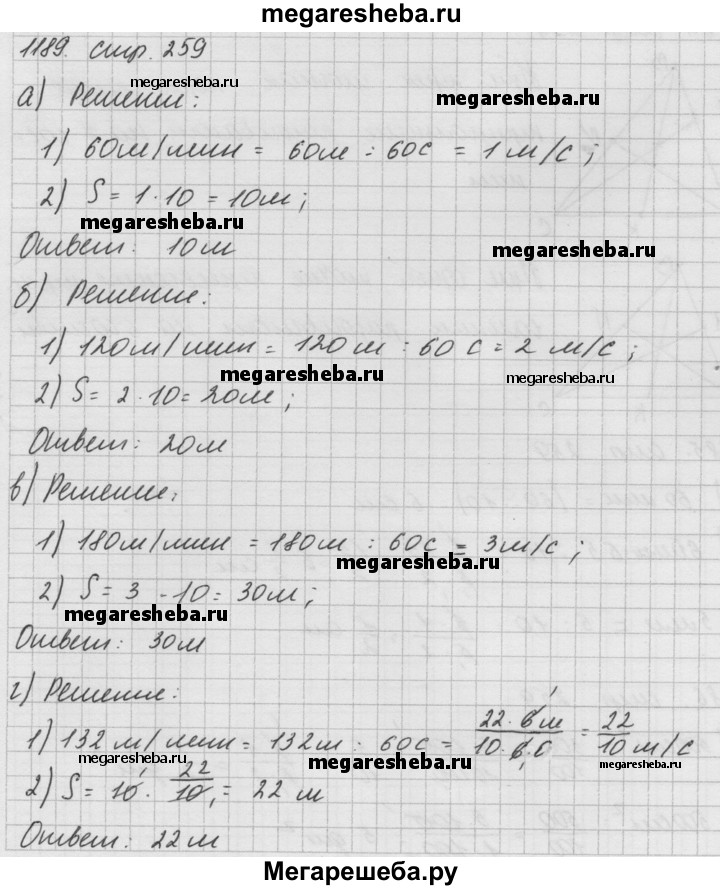 megaresheba.ru
1189. стр. 259
megaresheba.ru
а) Решение: megaresheba.ru
1) 60м/мин = 60м : 60с = 1 м/с;
2) S = 1 · 10 = 10м;
megaresheba.ru
Ответ: 10м megaresheba.ru
б) Решение:
1) 120м/мин = 120м : 60 с = 2 м/с;
megaresheba.ru megaresheba.ru
2) S = 2 · 10 = 20м;
Ответ: 20м
в) Решение:
1) 180м/мин = 180м : 60с = 3м/с;
megaresheba.ru
2) S = 3 · 10 = 30м;
megaresheba.ru
Ответ: 30м
г) Решение:
1) 132 м/мин = 132м : 60с = 22·6 м / 10·6 с = 22/10 м/с
megaresheba.ru megaresheba.ru megaresheba.ru
2) S = 10 · 22/10 = 22 м
Ответ: 22м
Мегарешеба.ру